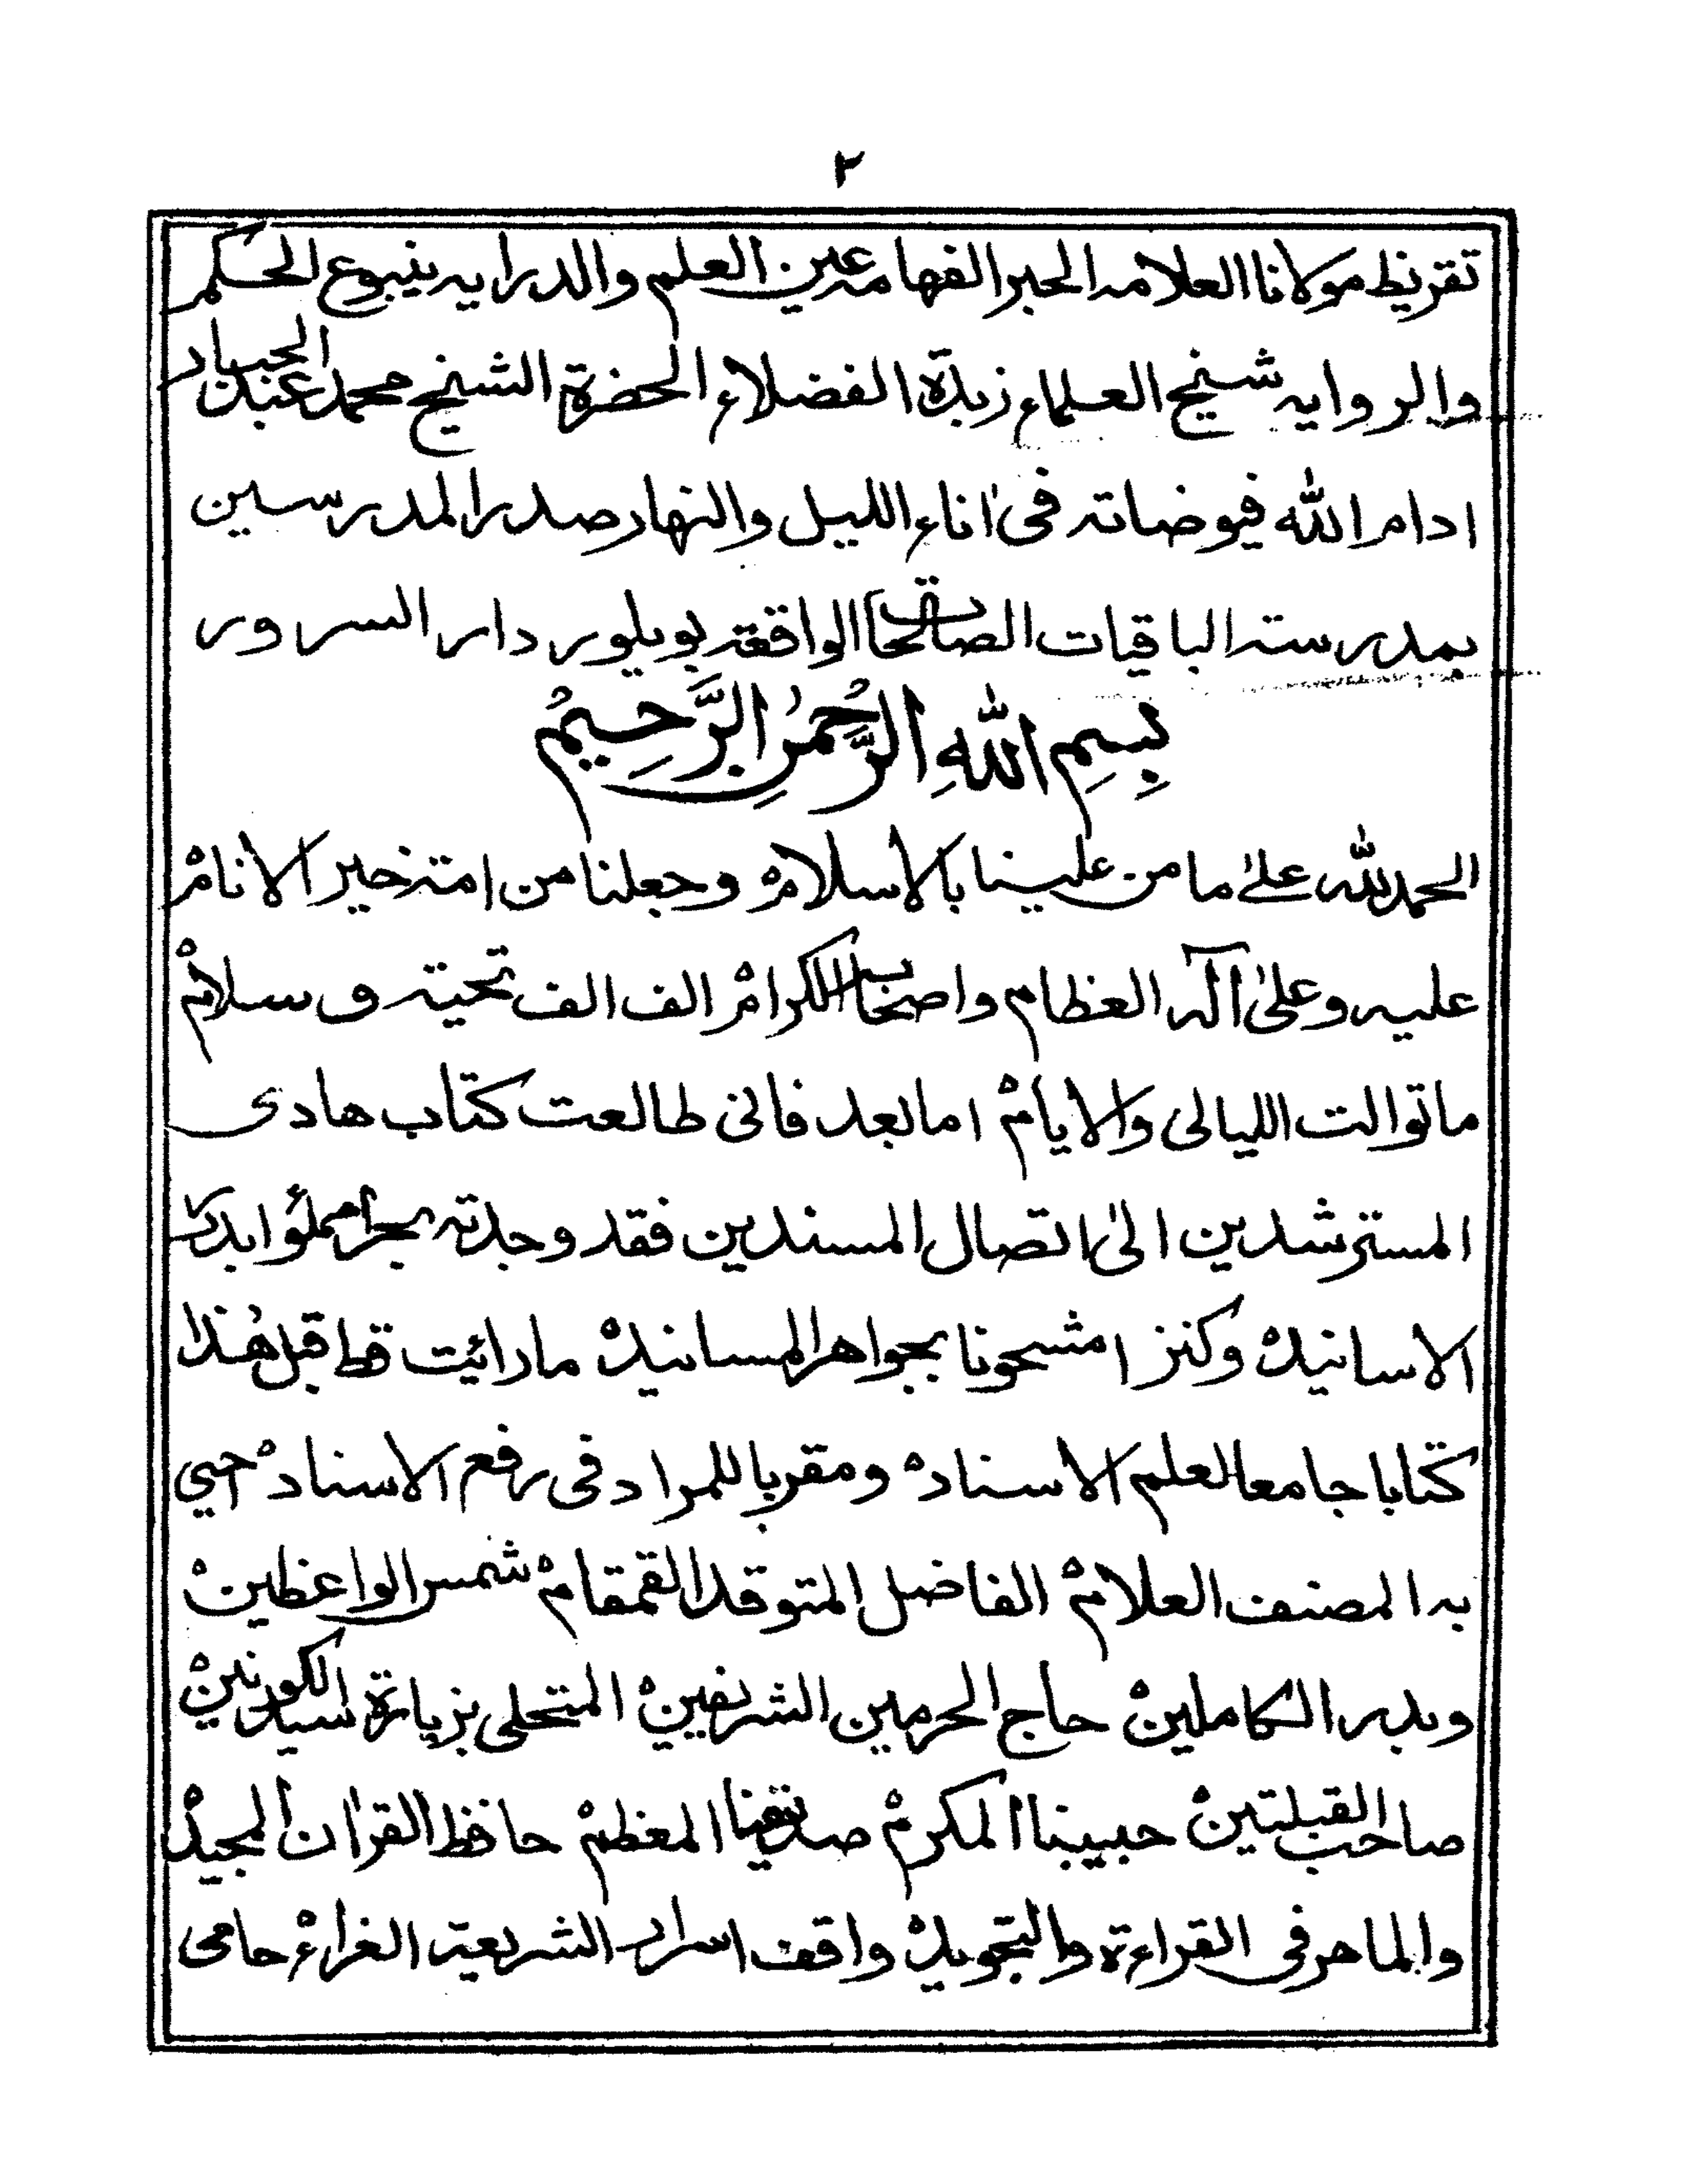 ٢
تقريظ مولانا العلامه الحبر الفهامه عين العلم والدرايه ينبوع الحكم
والروايه شيخ العلماء زبدة الفضلاء الحضرة الشيخ محمد عبد الجبار
ادام الله فيوضاته فى اٰناء الليل والنهار صدر المدرسين
بمدرسته الباقيات الصالحات الواقعة بويلور دار السرور
بِسِمِ اللهِ الرَّحْمٰنِ الرَّحِيمْ
الحمد لله علىٰ ما من علينا بالاسلامْ وجعلنا من امته خير الانامْ
عليه وعلىٰ آله العظام واصحاب الكرامْ الف الف تحية وسلامْ
ما توالت الليالى والايامْ اما بعد فانى طالعت كتاب هادى
المسترشدين الىٰ اتصال المسندين فقد وجدته بحرا مملؤا بدرر
الاسانيدْ وكنزا مشحونا بجواهر المسانيدْ ما رائيت قط قبل هٰذا
كتابا جامعا لعلم الاسنادْ ومقربا للمراد فى رفع الاسنادْ احيي
به المصنف العلامْ الفاضل المتوقد القمقامْ شمس الواعظينْ
وبدر الكاملينْ حاج الحرمين الشريفينْ المتحلى بزيارة سيد الكونينْ
صاحب القبلتينْ حبيبنا المكرمْ صديقنا المعظمْ حافظ القراٰن المجيدْ
والماهر فى القراءة والتجويدْ واقف اسرار الشريعة الغراءْ حامى